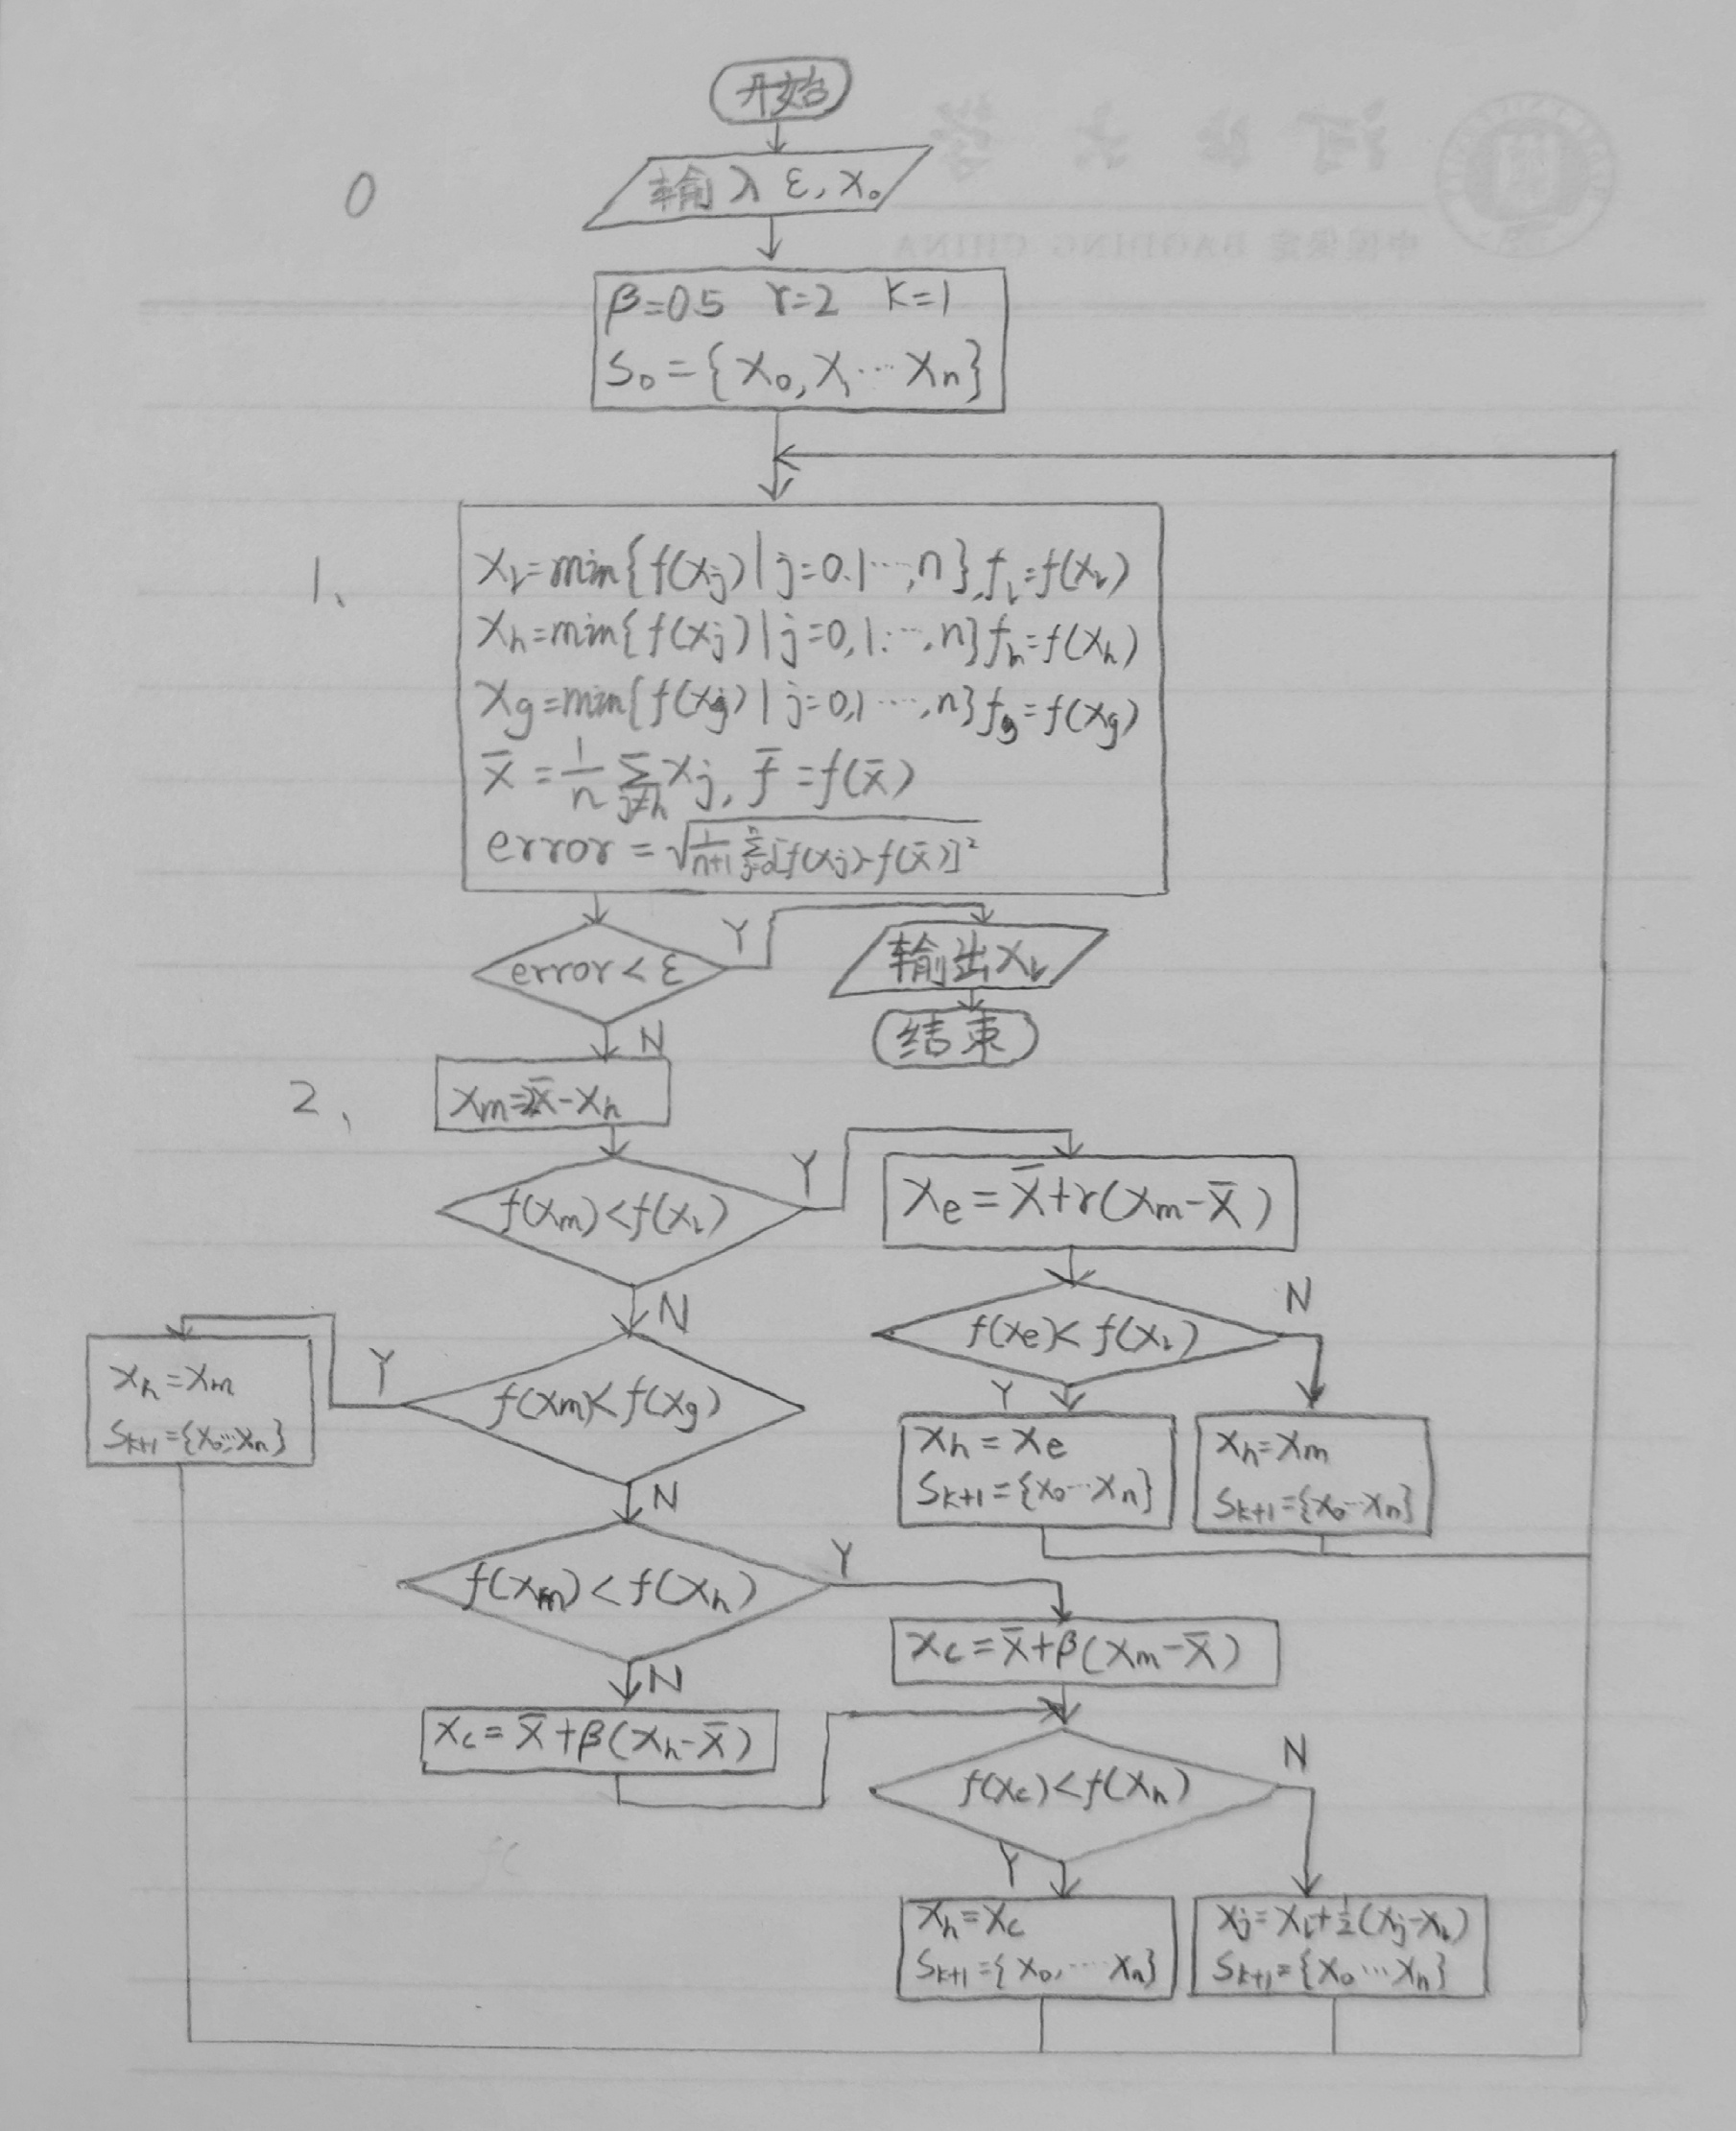 开始
0
输入 ε, x₀
β=0.5 γ=2 K=1
S₀={x₀,x₁…xₙ}
1、
x_l=min{f(xj)|j=0.1…,n},f_l=f(x_l)
x_h=min{f(xj)|j=0,1…,n}f_h=f(x_h)
x_g=min{f(xj)|j=0,1…,n}f_g=f(x_g)
x̄=1/n Σ_{j≠h} xj, f̄=f(x̄)
error=√(1/(n+1) Σ_{j=0}^{n}[f(xj)-f(x̄)]²)
error<ε
Y
输出x_l
N
结束
2、
x_m=2x̄-x_h
Y
f(x_m)<f(x_l)
x_e=x̄+γ(x_m-x̄)
N
N
f(x_e)<f(x_l)
x_h=x_m
S_{k+1}={x₀…xₙ}
Y
f(x_m)<f(x_g)
Y
x_h=x_e
S_{k+1}={x₀…xₙ}
x_h=x_m
S_{k+1}={x₀…xₙ}
N
f(x_m)<f(x_h)
Y
x_c=x̄+β(x_m-x̄)
N
x_c=x̄+β(x_h-x̄)
N
f(x_c)<f(x_h)
Y
x_h=x_c
S_{k+1}={x₀,…xₙ}
xj=x_l+½(xj-x_l)
S_{k+1}={x₀…xₙ}